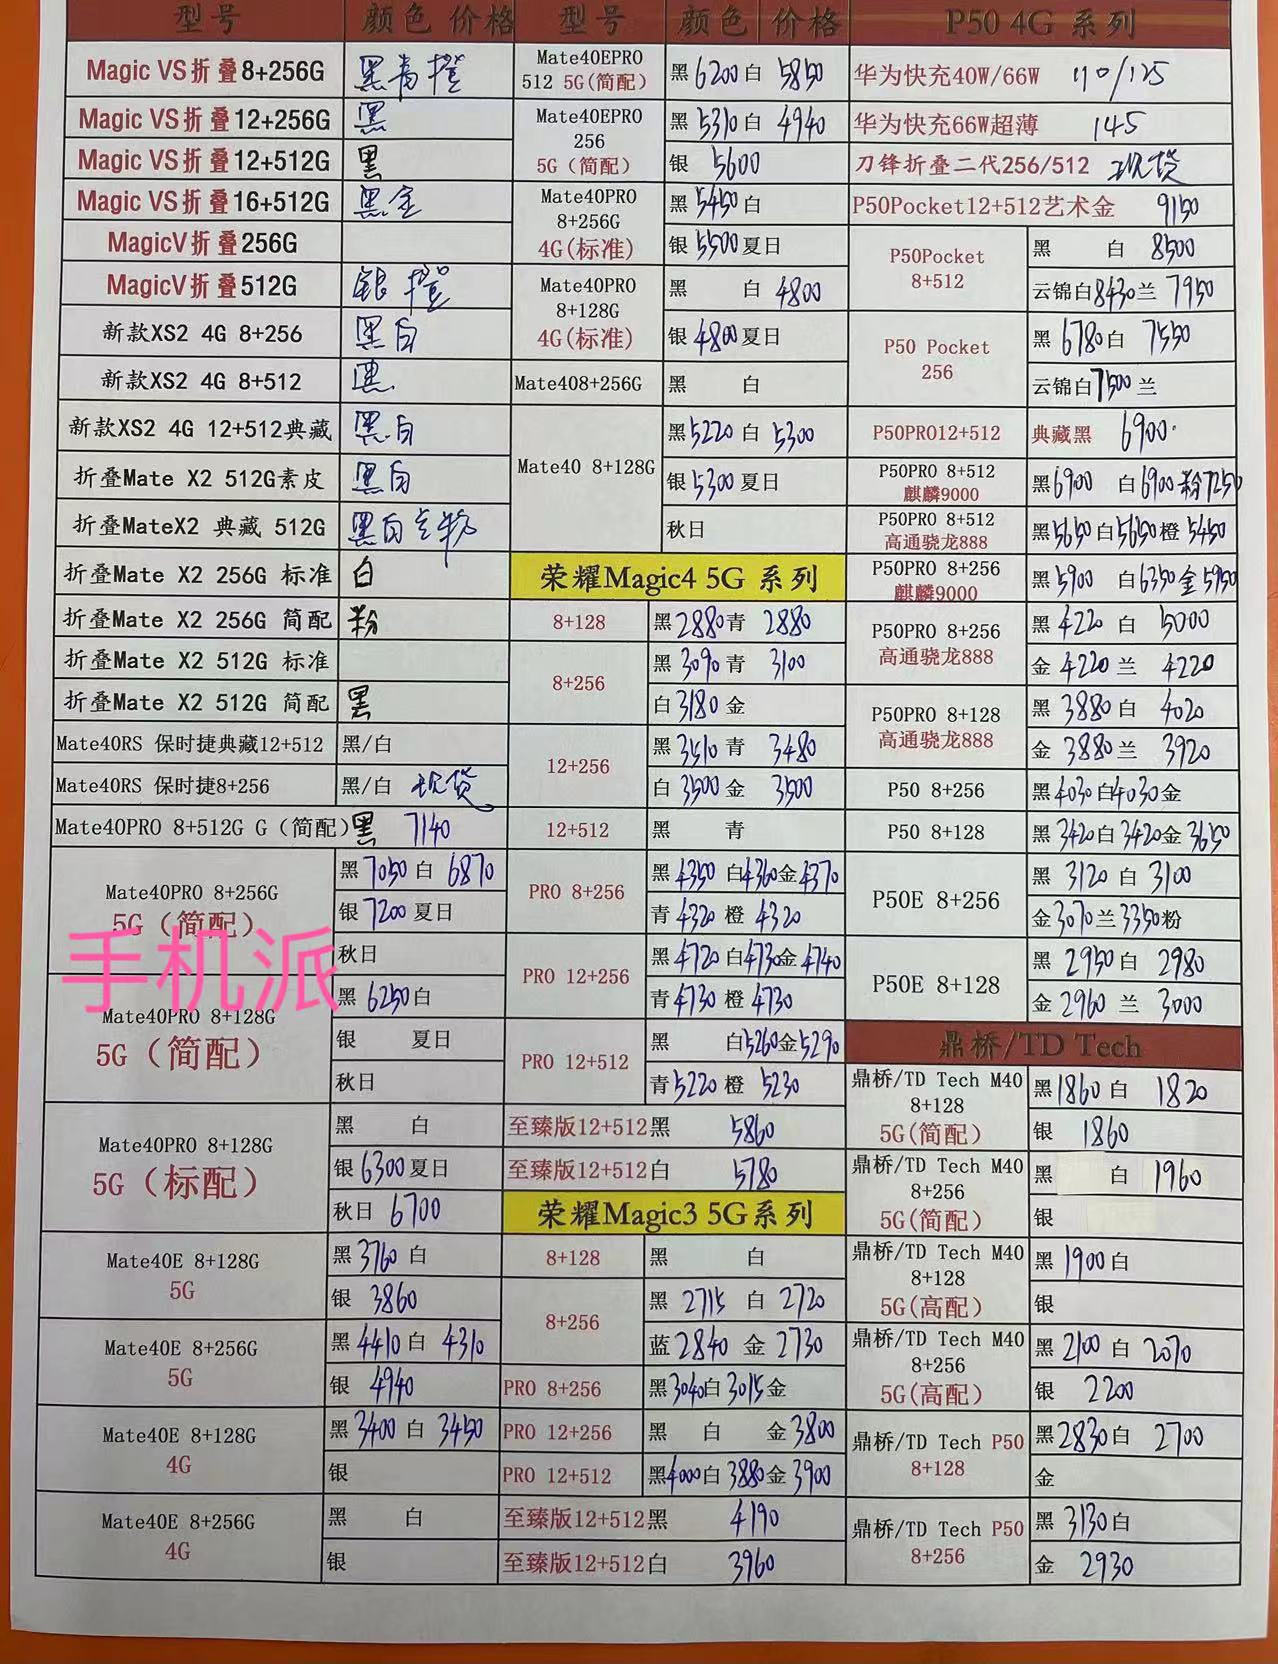 型号 颜色 价格
Magic VS折叠8+256G 黑青橙
Magic VS折叠12+256G 黑
Magic VS折叠12+512G 黑
Magic VS折叠16+512G 黑金
MagicV折叠256G
MagicV折叠512G 银 橙
新款XS2 4G 8+256 黑白
新款XS2 4G 8+512 黑
新款XS2 4G 12+512典藏 黑白
折叠Mate X2 512G素皮 黑白
折叠MateX2 典藏 512G 黑白
折叠Mate X2 256G 标准 白
折叠Mate X2 256G 简配 粉
折叠Mate X2 512G 标准
折叠Mate X2 512G 简配 黑
Mate40RS 保时捷典藏12+512 黑/白
Mate40RS 保时捷8+256 黑/白 现货
Mate40PRO 8+512G G（简配） 黑 7140
Mate40PRO 8+256G
5G（简配）
黑 7050 白 6870
银 7200 夏日
秋日
手机派
Mate40PRO 8+128G
5G（简配）
黑 6250 白
银 夏日
秋日
Mate40PRO 8+128G
5G（标配）
黑 白
银 6300 夏日
秋日 6700
Mate40E 8+128G
5G
黑 3760 白
银 3860
Mate40E 8+256G
5G
黑 4410 白 4310
银 4940
Mate40E 8+128G
4G
黑 3400 白 3450
银
Mate40E 8+256G
4G
黑 白
银
型号 颜色 价格
Mate40EPRO
512 5G(简配)
黑 6200 白 5850
Mate40EPRO
256
5G（简配）
黑 5310 白 4940
银 5600
Mate40PRO
8+256G
4G(标准)
黑 5450 白
银 5500 夏日
Mate40PRO
8+128G
4G(标准)
黑 白 4800
银 4800 夏日
Mate408+256G 黑 白
Mate40 8+128G
黑 5220 白 5300
银 5300 夏日
秋日
荣耀Magic4 5G 系列
8+128 黑 2880 青 2880
8+256
黑 3090 青 3100
白 3180 金
12+256
黑 3510 青 3480
白 3500 金 3500
12+512 黑 青
PRO 8+256
黑 4350 白 4360 金 4370
青 4320 橙 4320
PRO 12+256
黑 4720 白 4730 金 4740
青 4730 橙 4730
PRO 12+512
黑 白 5260 金 5290
青 5220 橙 5230
至臻版12+512黑 5860
至臻版12+512白 5780
荣耀Magic3 5G系列
8+128 黑 白
8+256
黑 2715 白 2720
蓝 2840 金 2730
PRO 8+256 黑 3040 白 3015 金
PRO 12+256 黑 白 金 3800
PRO 12+512 黑 4000 白 3880 金 3900
至臻版12+512黑 4190
至臻版12+512白 3960
P50 4G 系列
华为快充40W/66W 110/125
华为快充66W超薄 145
刀锋折叠二代256/512 现货
P50Pocket12+512艺术金 9150
P50Pocket
8+512
黑 白 8500
云锦白 8430 兰 7950
P50 Pocket
256
黑 6780 白 7550
云锦白 7500 兰
P50PRO12+512 典藏黑 6900
P50PRO 8+512
麒麟9000
黑 6900 白 6900 粉 7250
P50PRO 8+512
高通骁龙888
黑 5650 白 5650 橙 5450
P50PRO 8+256
麒麟9000
黑 5900 白 6350 金 5950
P50PRO 8+256
高通骁龙888
黑 4220 白 5000
金 4220 兰 4220
P50PRO 8+128
高通骁龙888
黑 3880 白 4020
金 3880 兰 3920
P50 8+256 黑 4030 白 4030 金
P50 8+128 黑 3420 白 3420 金 3650
P50E 8+256
黑 3120 白 3100
金 3070 兰 3350 粉
P50E 8+128
黑 2950 白 2980
金 2960 兰 3000
鼎桥/TD Tech
鼎桥/TD Tech M40
8+128
5G(简配)
黑 1860 白 1820
银 1860
鼎桥/TD Tech M40
8+256
5G(简配)
黑 白 1960
银
鼎桥/TD Tech M40
8+128
5G(高配)
黑 1900 白
银
鼎桥/TD Tech M40
8+256
5G(高配)
黑 2100 白 2070
银 2200
鼎桥/TD Tech P50
8+128
黑 2830 白 2700
金
鼎桥/TD Tech P50
8+256
黑 3130 白
金 2930